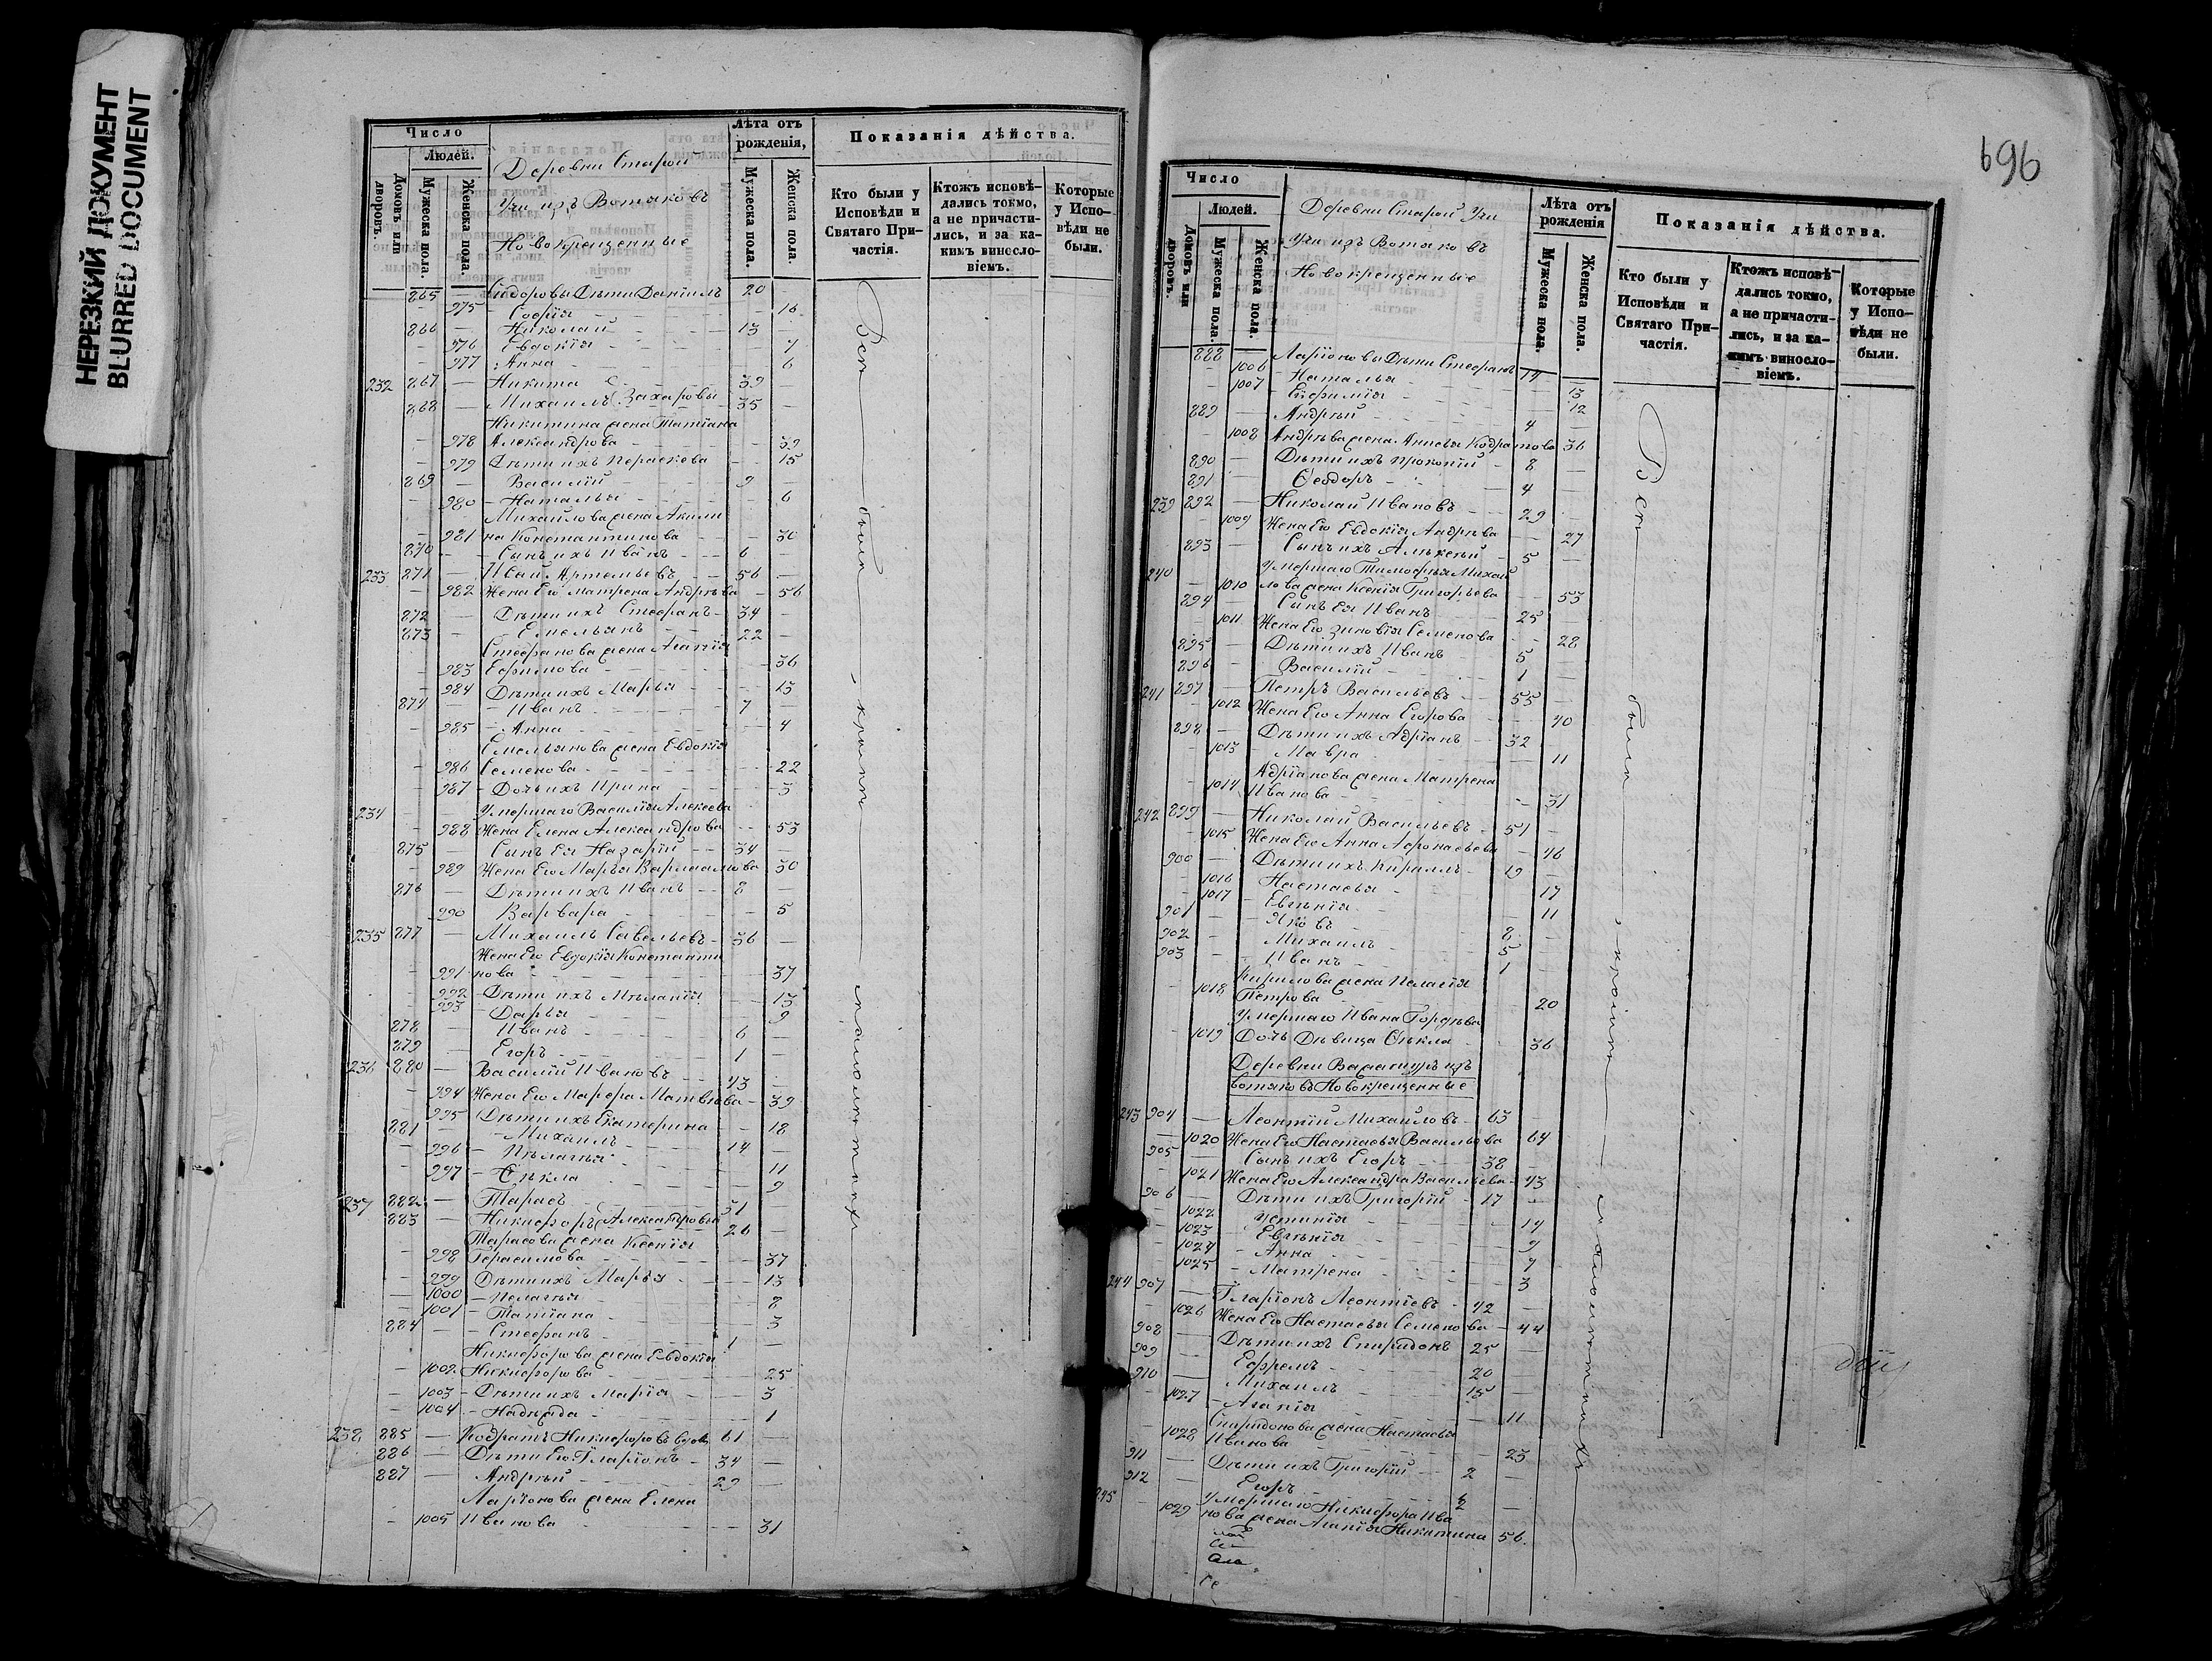 НЕРЕЗКИЙ ДОКУМЕНТ
BLURRED DOCUMENT
Число
Людей.
Домовъ или дворовъ.
Мужеска пола.
Женска пола.
Деревни Старой
Учи изъ Вотяковъ
Новокрещенные
Лѣта отъ рожденія,
Мужеска пола.
Женска пола.
Показанія дѣйства.
Кто были у Исповѣди и Святаго Причастія.
Ктожъ исповѣдались токмо, а не причастились, и за какимъ винословіемъ.
Которые у Исповѣди не были.
865 — Сидоровы Дѣти Даніилъ 20
975 - София - 16
866 — Николай - 13
976 Евдокія - 7
977 Анна - 6
232 867 — Никита 39
868 — Михаилъ Захаровы 35
Никитина жена Татіана
978 Александрова - 39
979 Дѣти ихъ Параскева - 15
869 — Василій - 9
980 - Наталья - 6
Михайлова жена Акили
981 на Константинова - 30
870 - Сынъ ихъ Иванъ - 6
233 871 — Иван Артемьевъ - 56
982 Жена Его Матрена Андрѣева - 56
872 — Дѣти ихъ Стефанъ - 34
873 - Емельянъ - 22
Стефанова жена Агапія
983 Ефимова - 36
984 Дѣти ихъ Марья - 13
874 - Иванъ - 7
985 - Анна - 4
Емельянова жена Евдокія
986 Семенова - 22
987 - Дочь ихъ Ирина - 3
234 Умершаго Василія Алексеева
988 Жена Елена Александрова - 53
875 — Сынъ Ея Назарій - 34
989 Жена Его Марья Варлаамова 30
876 — Дѣти ихъ Иванъ - 8
990 Варвара - 5
235 877 — Михаилъ Савельевъ - 36
Жена Его Евдокія Константи
991 нова - 37
992 - Дѣти ихъ Мѣланія - 13
993 - Дарья - 9
878 - Иванъ - 6
879 — Егоръ - 1
236 880 — Василій Ивановъ - 43
994 Жена Его Марфа Матвѣева - 39
995 Дѣти ихъ Екатерина - 18
881 - Михаилъ - 14
996 - Пѣлагія - 11
997 - Ѳекла - 9
237 882 — Тарасъ 31
883 — Никифоръ Александровы 26
Тарасова жена Ксенія
998 Герасимова - 37
999 Дѣти ихъ Марья - 13
1000 - Пелагья - 8
1001 - Татіана - 3
884 - Стефанъ - 1
Никифорова жена Евдокія
1002 Никифорова - 25
1003 - Дѣти ихъ Марія - 3
1004 - Надежда - 1
238 885 — Кодратъ Никифоровъ вдов 61
886 — Дѣти Его Иларіонъ - 34
887 — Андрѣй - 29
Ларіонова жена Елена
1005 Иванова - 31
Всѣ — были — , кромѣ — малолѣтнихъ
696
Число
Людей.
Домовъ или дворовъ.
Мужеска пола.
Женска пола.
Деревни Старой Учи
Учи изъ Вотяковъ
Новокрещенные
Лѣта отъ рожденія
Мужеска пола.
Женска пола.
Показанія дѣйства.
Кто были у Исповѣди и Святаго Причастія.
Ктожъ исповѣдались токмо, а не причастились, и за какимъ винословіемъ.
Которые у Исповѣди не были.
888 Ларіоновы Дѣти Стефанъ 14
1006 - Наталья - 13
1007 - Евфимія - 12
889 — Андрѣй - 4
1008 Андрѣева жена Анисья Кодратова 36
890 — Дѣти ихъ Прокопій - 8
891 — Ѳеодоръ - 4
239 892 — Николай Ивановъ - 29
1009 Жена Его Евдокія Андрѣева - 27
893 — Сынъ ихъ Алѣксѣй - 5
240 Умершаго Тимофѣя Михай
1010 лова жена Ксенія Григорьева - 53
894 — Сынъ Ея Иванъ - 25
1011 Жена Его Зиновія Семенова - 28
895 — Дѣти ихъ Иванъ - 5
896 - Василій - 1
241 897 — Петръ Васильевъ - 55
1012 Жена Его Анна Егорова - 40
898 — Дѣти ихъ Адріанъ - 32
1013 Мавра - 11
Адріанова жена Матрена
1014 Иванова - 31
242 899 — Николай Васильевъ - 51
1015 Жена Его Анна Афонасьева - 46
900 — Дѣти ихъ Кирилъ - 19
1016 - Настасья - 17
1017 - Евгѣнія - 11
901 - Яковъ - 8
902 - Михаилъ - 5
903 - Иванъ - 1
Кирилова жена Пелагія
1018 Петрова - 20
Умершаго Ивана Гордѣева
1019 Дочь Дѣвица Ѳекла - 36
Деревни изъ
Вотяковъ Новокрещенные
243 904 — Леонтій Михайловъ - 63
1020 Жена Его Настасья Васильева 64
905 — Сынъ ихъ Егоръ - 38
1021 Жена Его Александра Васильева - 43
906 — Дѣти ихъ Григорій - 17
1022 Устинія - 14
1023 Евгѣнія - 9
1024 - Анна - 7
1025 - Матрена - 3
244 907 — Иларіонъ Леонтіевъ - 42
1026 Жена Его Настасья Семенова - 44
908 — Дѣти ихъ Спиридонъ 25
909 — Ефремъ - 20
910 — Михаилъ - 15
1027 - Агапія - 11
Спиридонова жена Настасья
1028 Иванова - 23
911 — Дѣти ихъ Григорій - 2
912 — Егоръ - 2
245 Умершаго Никифора Ива
1029 нова жена Агапія Никитина 56
Всѣ — были — , кромѣ — малолѣтнихъ